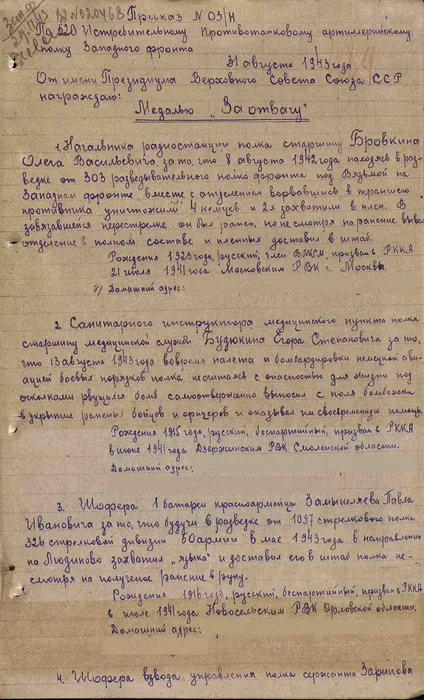 Приказ № 03/Н
№020468
По 520 Истребительному Противотанковому артиллерийскому
полку Западного фронта
31 августа 1943 года
От имени Президиума Верховного Совета Союза ССР
награждаю:
Медалью „За отвагу"
1. Начальника радиостанции полка старшину Бровкина
Олега Васильевича за то, что 8 августа 1942 года находясь в раз-
ведке от 303 разведывательного полка фронта под Вязьмой на
Западном фронте вместе с отделением ворвавшись в траншею
противника уничтожили 4 немцев и 2х захватили в плен. В
завязавшейся перестрелке он был ранен, но не смотря на ранение вывел
отделение в полном составе и пленных доставил в штаб.
Рождения 1923 года, русский, член ВЛКСМ, призван в РККА
21 июля 1941 года Московским РВК г. Москвы.
Домашний адрес:
2. Санитарного инструктора медицинского пункта полка
старшину медицинской службы Будюкина Егора Степановича за то,
что 13 августа 1943 года вовремя налета и бомбардировки немецкой ави-
ацией боевых порядков полка несчитаясь с опасностью для жизни под
осколками рвущихся бомб самоотверженно выносил с поля бомбежки
в укрытие раненых бойцов и офицеров и оказывал им своевременную помощь.
Рождения 1915 года, русский, беспартийный, призван в РККА
в июне 1941 года Дзержинским РВК Смоленской области.
Домашний адрес:
3. Шофера 1 батареи красноармейца Замышляева Павла
Ивановича за то, что будучи в разведке от 1097 стрелкового полка
326 стрелковой дивизии 50 армии в мае 1943 года в направлении
на Людиново захватил „языка" и доставил его в штаб полка не-
смотря на полученое ранение в руку.
Рождения 1916 года, русский, беспартийный, призван в РККА
в июле 1941 года Новосельским РВК Орловской области.
Домашний адрес:
4. Шофера взвода управления полка сержанта Зарипова